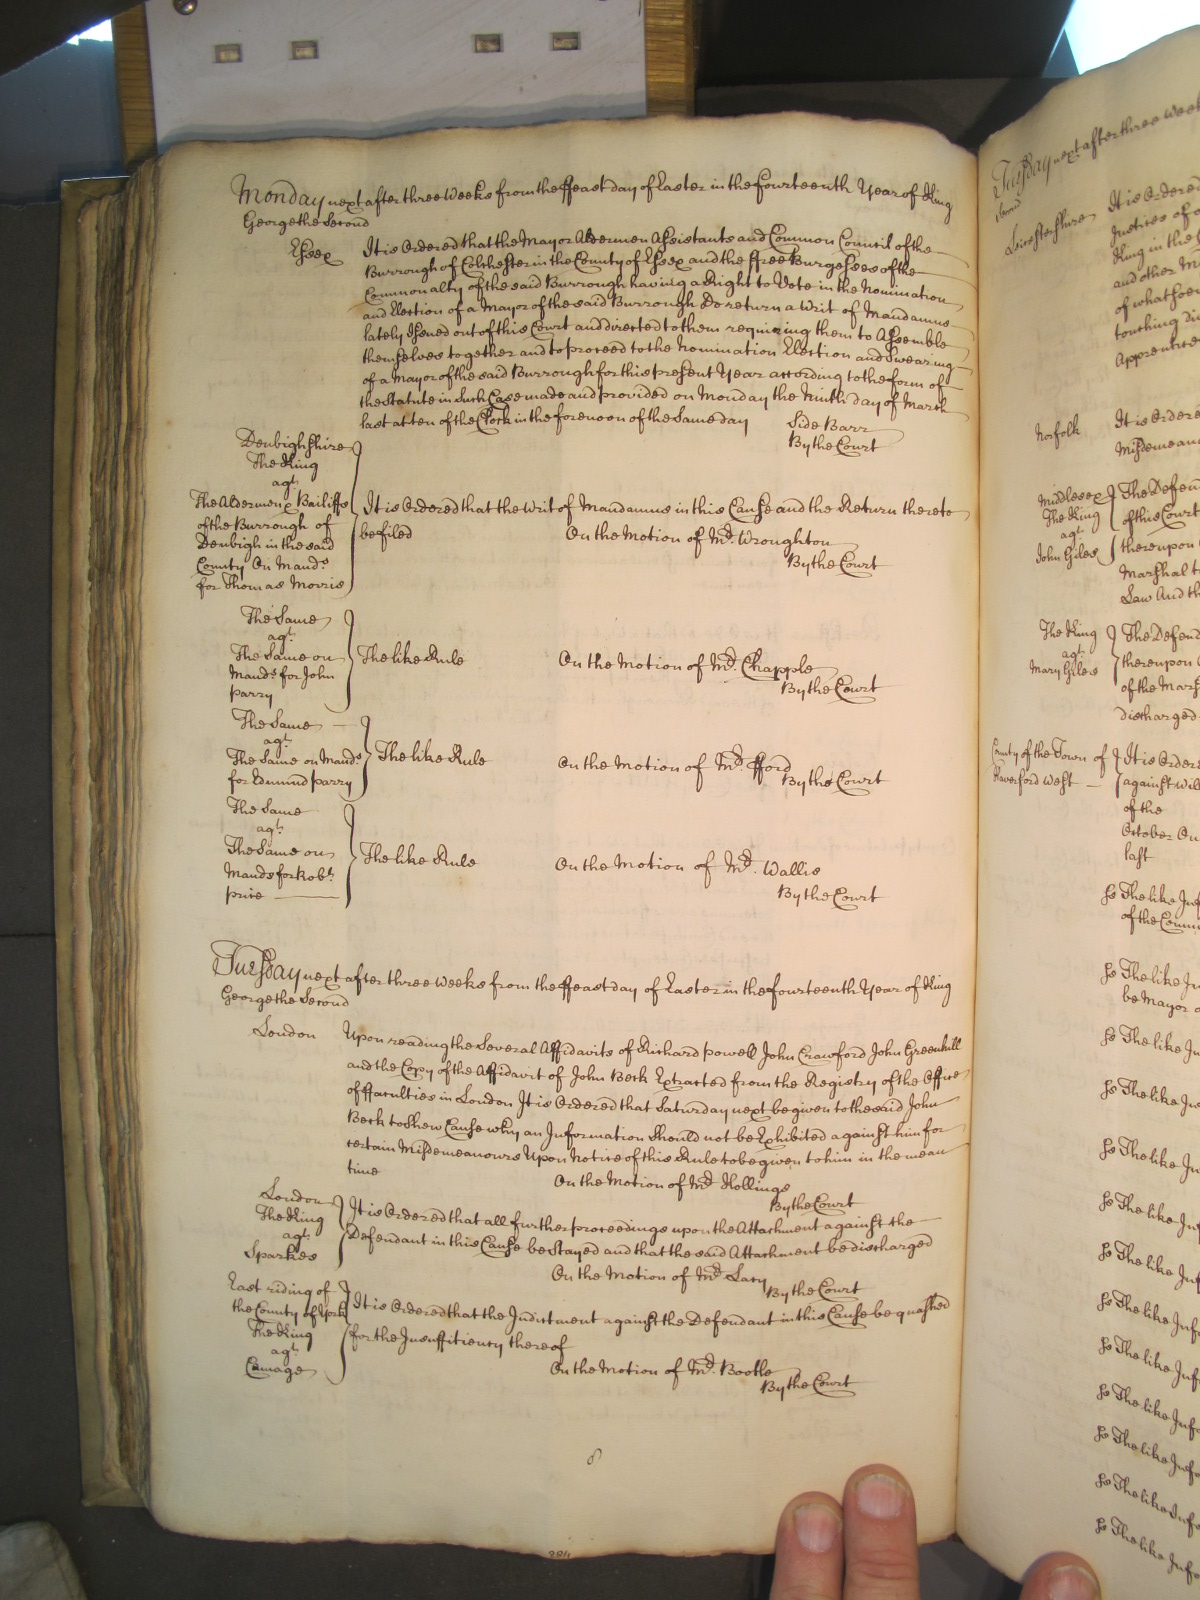 Monday next after three Weeks from the ffeast day of Easter in the ffourteenth Year of King
George the Second
Essex
It is Ordered that the Mayor Aldermen Assistants and Common Council of the
Burrough of Colchester in the County of Essex and the ffree Burgesses of the
Commonalty of the said Burrough having a Right to Vote in the Nomination
and Election of a Mayor of the said Burrough Do return a Writ of Mandamus
lately Issued out of this Court and directed to them requiring them to Assemble
themselves together and to proceed to the Nomination Election and Swearing
of a Mayor of the said Burrough for this present Year according to the form of
the Statute in Such Case made and provided on Monday the Ninth day of March
last at ten of the Clock in the forenoon of the Same day Side Barr
By the Court
Denbighshire
The King
agt.
The Aldermen & Bailiffs
of the Burrough of
Denbigh in the said
County On Mands.
for Thomas Morris
It is Ordered that the Writ of Mandamus in this Cause and the Return thereto
be filed On the Motion of Mr. Wroughton
By the Court
The Same
agt.
The Same on
Mands. for John
Parry
The like Rule On the Motion of Mr. Chapple
By the Court
The Same
agt.
The Same on Mands.
for Edmund Parry
The like Rule On the Motion of Mr. fford
By the Court
The Same
agt.
The Same on
Mands for Robt.
Price
The like Rule On the Motion of Mr. Wallis
By the Court
Tuesday next after three Weeks from the ffeast day of Easter in the ffourteenth Year of King
George the Second
London
Upon reading the Several Affidavits of Richard Powell John Crawford John Greenhill
and the Copy of the Affidavit of John Beck Extracted from the Registry of the Office
of ffaculties in London It is Ordered that Saturday next be given to the said John
Beck to Shew Cause why an Information Should not be Exhibited against him for
certain Misdemeanours Upon Notice of this Rule to be given to him in the mean
time On the Motion of Mr. Hollings
By the Court
London
The King
agt.
Sparkes
It is Ordered that all further proceedings upon the Attachment against the
Defendant in this Cause be Stayed and that the said Attachment be discharged
On the Motion of Mr. Lacy
By the Court
East riding of
the County of York
The King
agt.
It is Ordered that the Indictment against the Defendant in this Cause be quashed
for the Insufficiency thereof
On the Motion of Mr. Bootle
By the Court
Tuesday next after three Week
Leicestershire
It is Ordered
Justices of
King in the
and other M
of whatsoe
touching
Apprentice
Norfolk
It is Ordere
Misdemean
Middlesex
The King
agt.
John Giles
The Defen
of this Court
thereupon
Marshal t
Law And th
The King
agt.
Mary Giles
The Defend
thereupon
of the Mars
discharged
County of the Town of
Haverford West
It is Ordere
against Will
of the
October On
last
So The like Inf
of the Comm
So The like In
be Mayor
So The like In
So The like In
So The like In
So The like Inf
So The like Inf
So The like Inf
So The like Inf
So The like Inf
So The like Inf
So The like Inf
So The like Inf